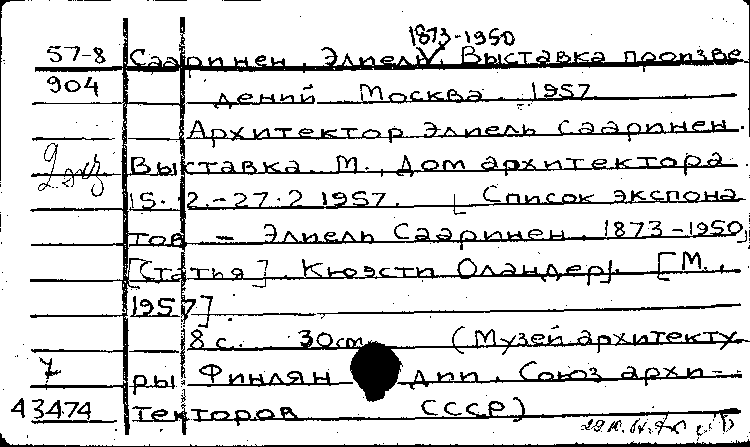 1873-1950
57-8 Сааринен, Элиель. Выставка произве
904 дений Москва. 1957
Архитектор Элиель Сааринен.
2 экз Выставка. М., Дом архитектора
15.2.-27.2 1957. [Список экспона
тов - Элиель Сааринен. 1873-1950,
[Статья]. Кюэсти Оландер]. [М.,
1957].
8 с. 30cm. (Музей архитекту-
7 ры Финлян дии. Союз архи-
43474 текторов СССР)